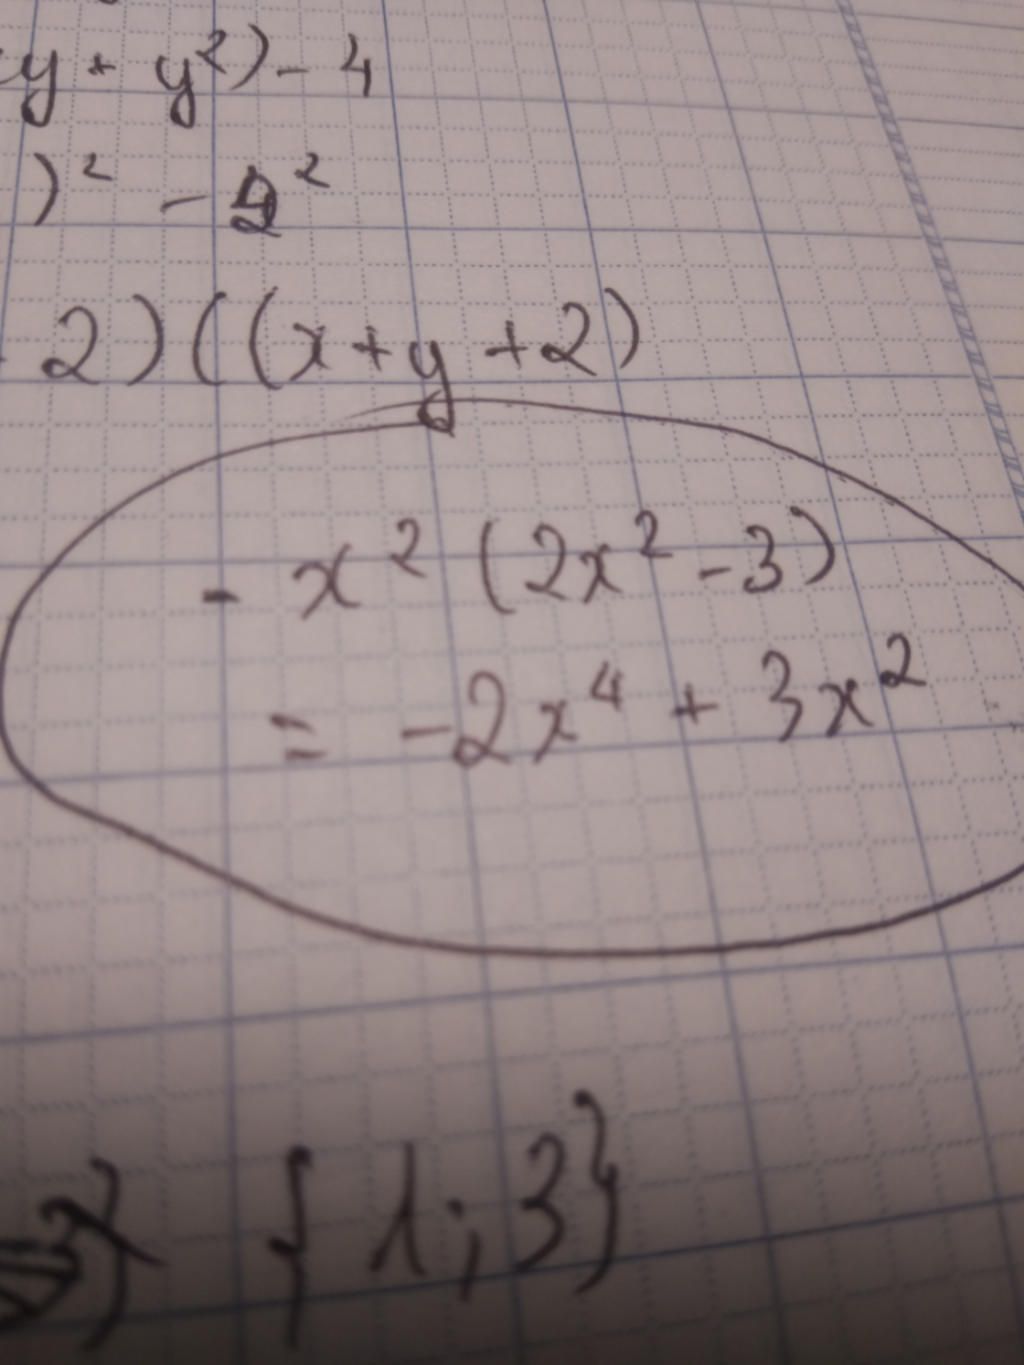 y + y²) - 4
)² - 2²
2)((x+y+2)
- x² (2x² - 3)
= -2x⁴ + 3x²
{1;3}